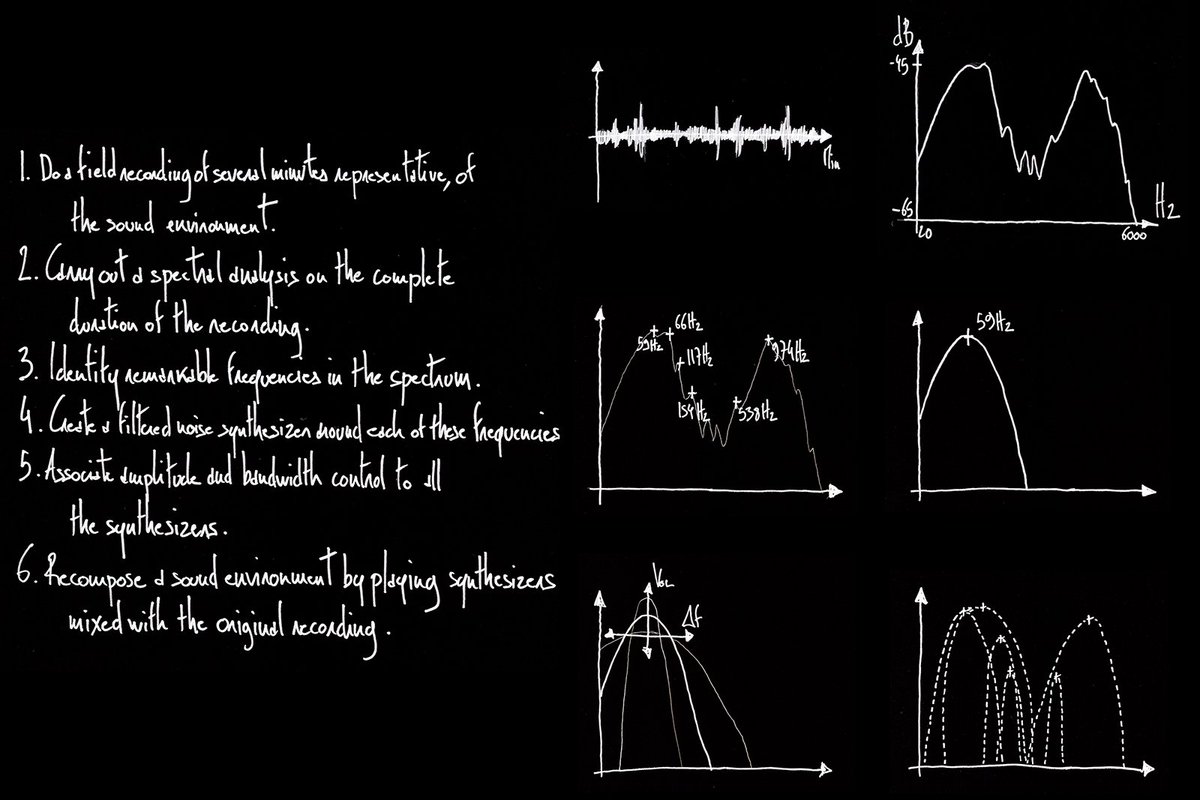 1. Do a field recording of several minutes representative, of
the sound environment.
2. Carry out a spectral analysis on the complete
duration of the recording.
3. Identity remarkable frequencies in the spectrum.
4. Create a filtered noise synthesizer around each of these frequencies
5. Associate amplitude and bandwidth control to all
the synthesizers.
6. Recompose a sound environment by playing synthesizers
mixed with the original recording.
Min
dB
-45
-65
20
6000
Hz
59Hz
66Hz
117Hz
154Hz
538Hz
974Hz
59Hz
Vol
Δf